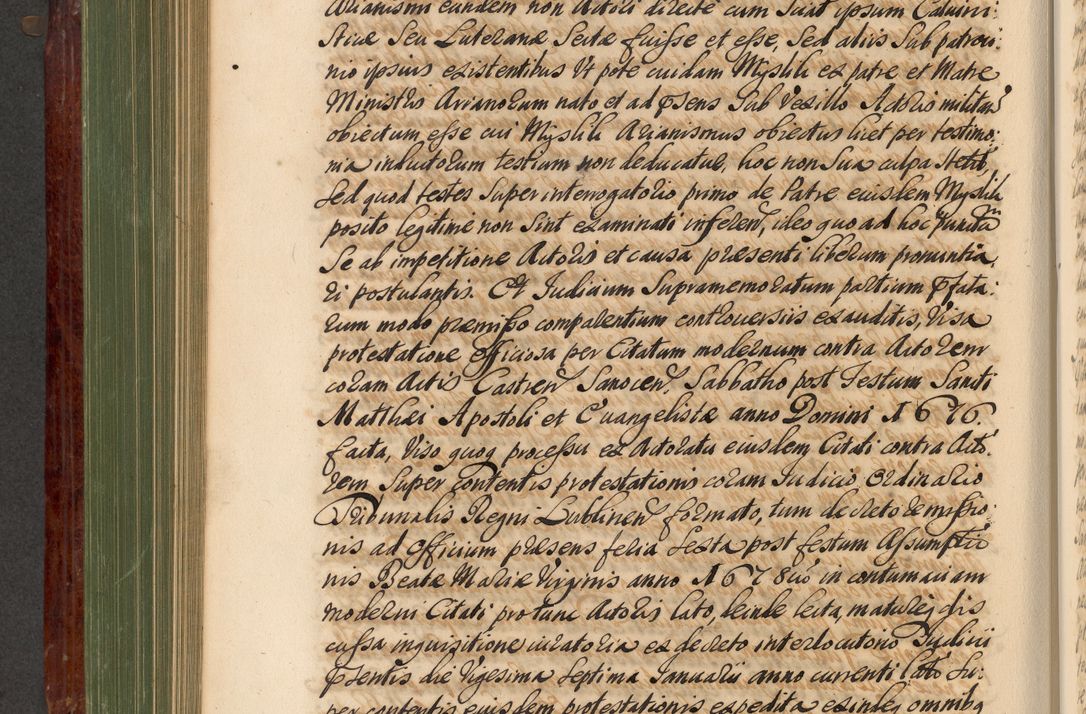 Arianismi eundem non Actori directe cum sciat ipsum Calvini:
sticæ seu Luteranæ sectæ fuisse et esse, sed aliis sub patroci:
nio ipsius existentibus Ut pote cuidam Myslik ex patre et Matre
Ministris Arrianorum nato et ad psens sub Vexillo Actoris militan
obiectum esse cui Myslik Arianismus obiectus licet per testimo:
nia inductorum testium non deducatur, hoc non sua culpa stetit,
sed quod testes super interrogatorio primo de Patre eiusdem Myslik
posito legitime non sint examinati inferen, ideo quo ad hoc punctum
se ab impetitione Actoris et causa præsenti liberum pronuntia
ri postulantis. Et Judicium supramemoratum partium pfata:
rum modo præmisso comparentium controversiis exauditis, Visa
protestatione officiosa per Citatum modernum contra Actorem
coram Actis Castren Sanocen Sabbatho post Festum Sancti
Matthæi Apostoli et Evangelistæ anno Domini 1676.
facta, Viso quoq processu ex Actoratu eiusdem Citati contra Acto:
rem super contentis protestationis coram Judicio Ordinario
Tribunalis Regni Lublinen formato, tum decreto remissio:
nis ad officium præsens feria sexta post festum Assumptio
nis Beatæ Mariæ Virginis anno 1678 in contumaciam
moderni Citati pro tunc Actoris lato, deinde lecta, matureq dis
cussa inquisitione curatoria ex decreto interlocutorio Judicii
psentis die Vigesima septima Januarii anno currenti lato su:
per contentis eiusdem protestationis expedita exindeq omnibq